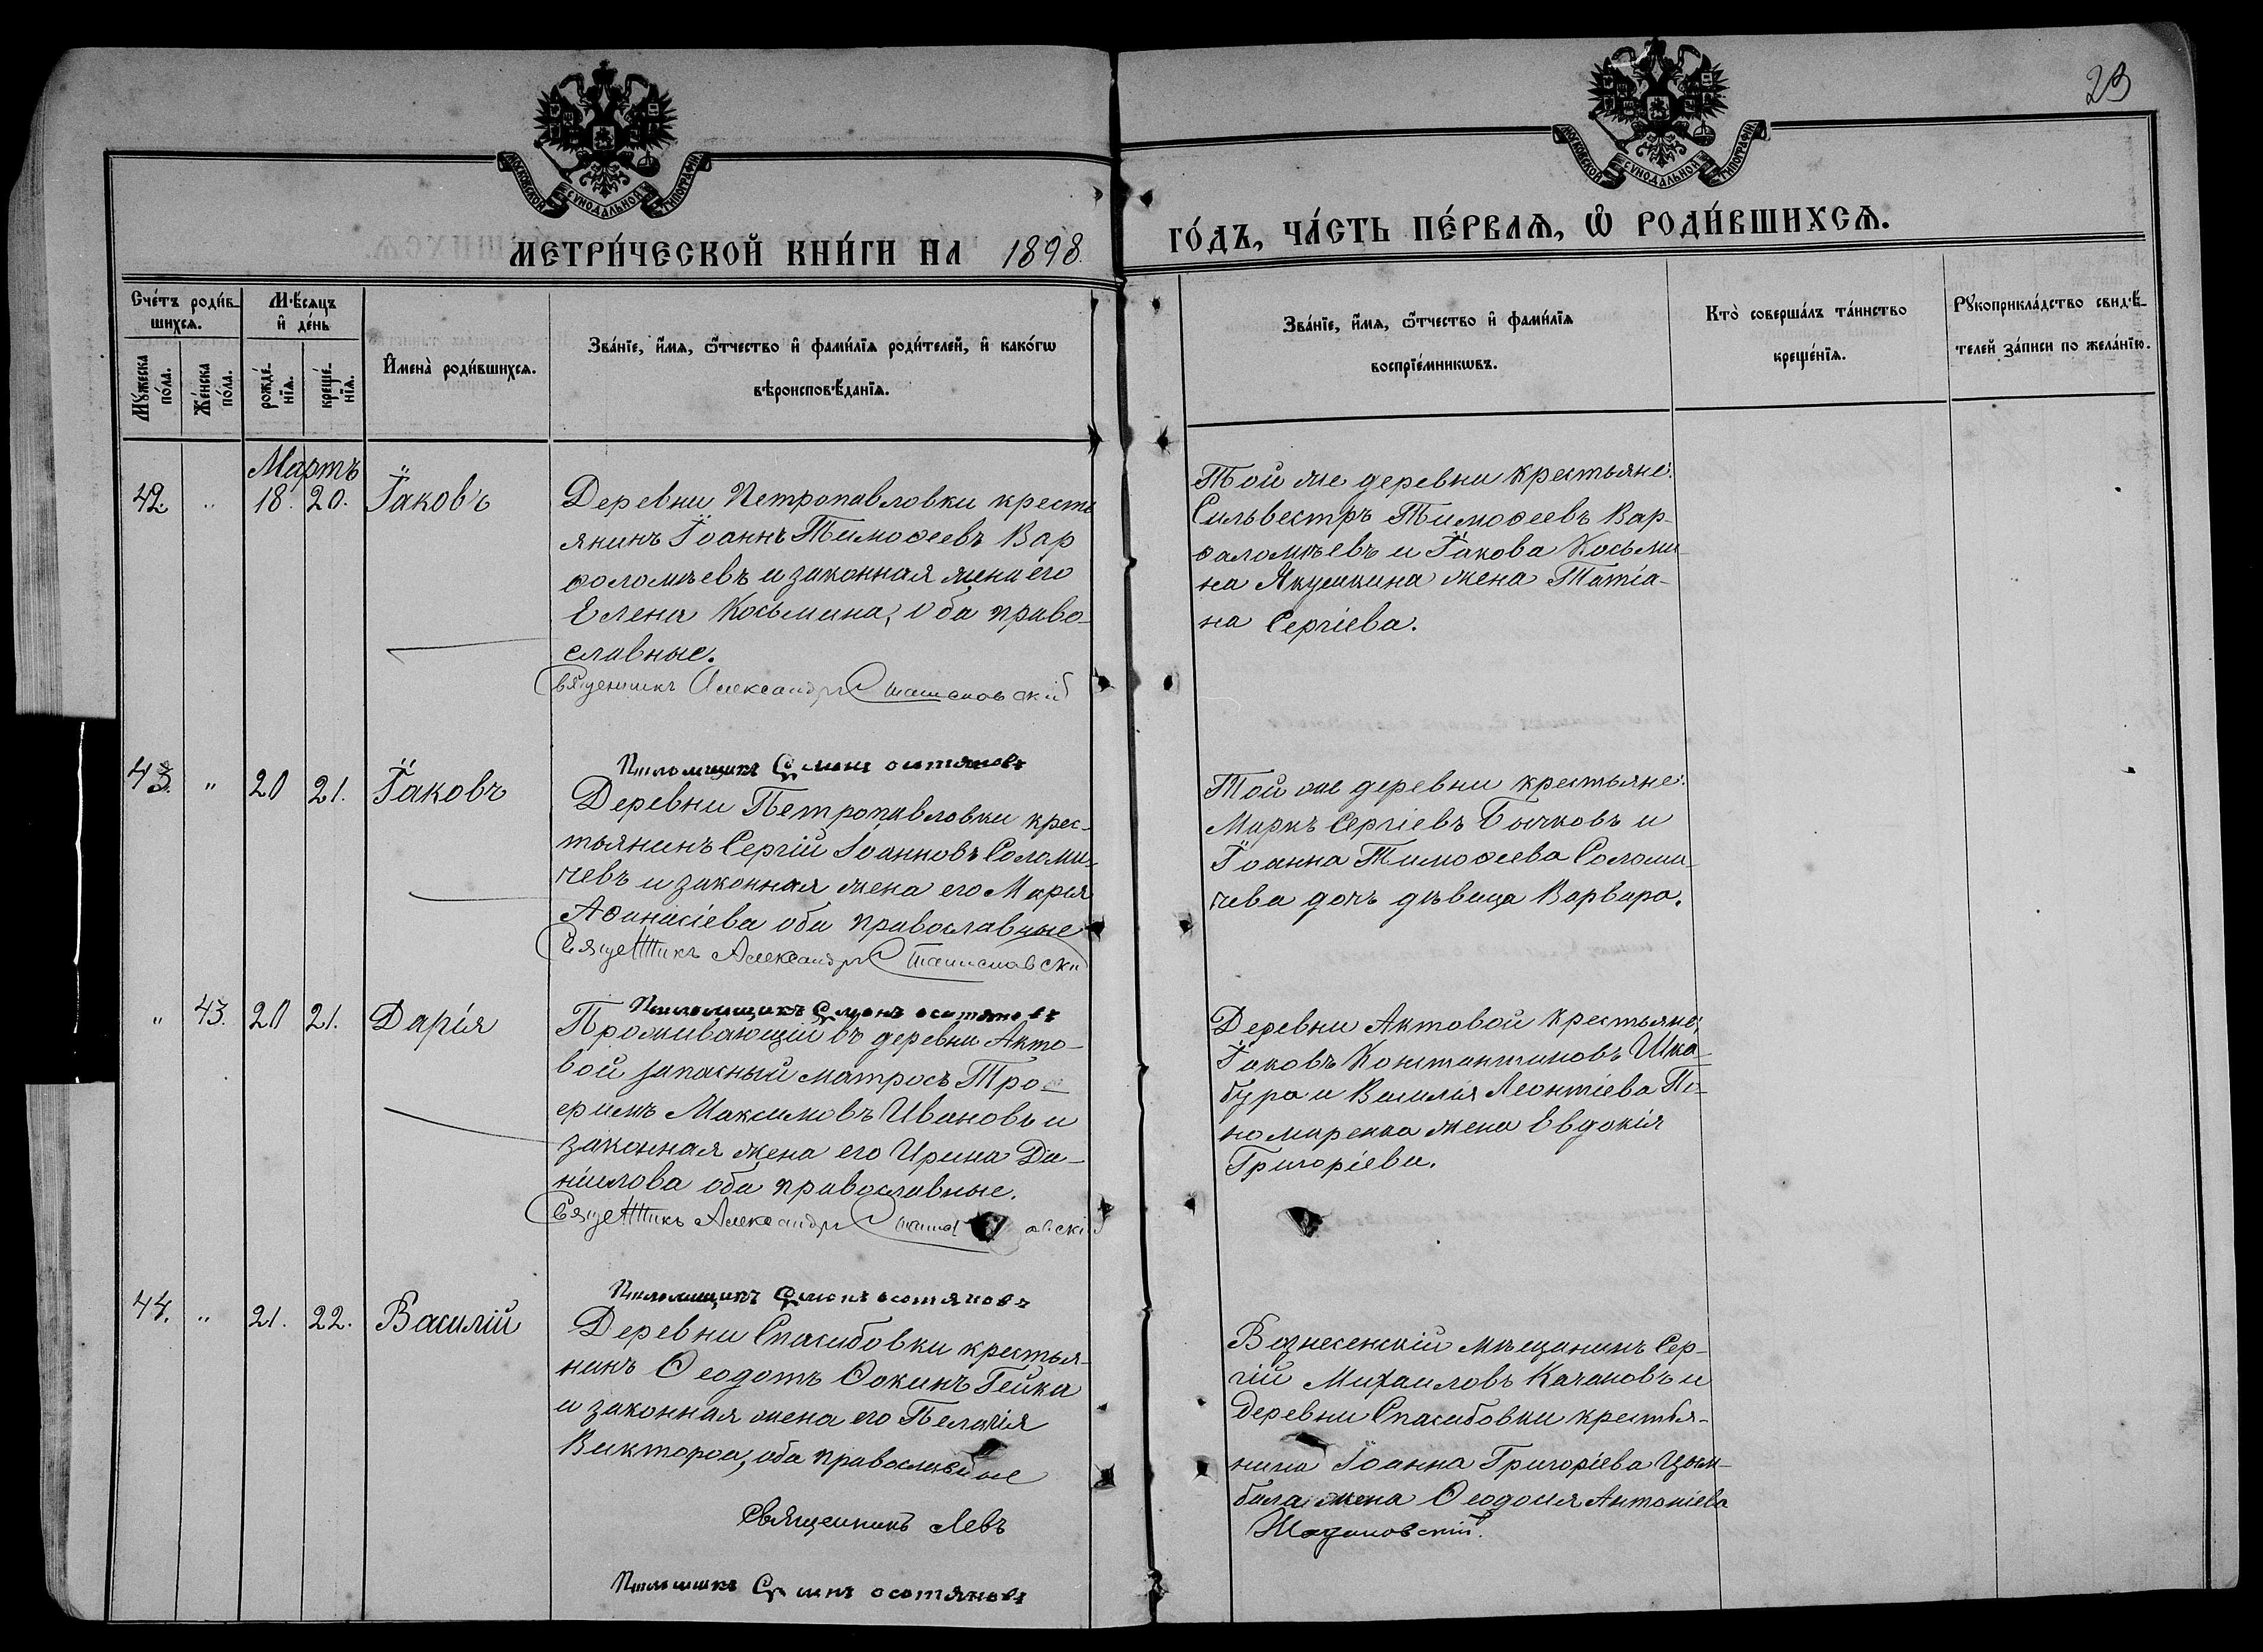 23
МОСКОВСКОЙ СѴНОДАЛЬНОЙ ТИПОГРАФІИ
МОСКОВСКОЙ СѴНОДАЛЬНОЙ ТИПОГРАФІИ
МЕТРИ́ЧЕСКОЙ КНИ́ГИ НА 1898.
ГО́ДЪ, ЧА́СТЬ ПЕ́РВАѦ, Ѽ РОДИ́ВШИХСѦ.
Сче́тъ роди́в-
шихсѧ.
Мꙋ́жеска по́ла.
Же́нска по́ла.
М҆ѣсяцъ
и҆ де́нь
рожде́-
нїѧ.
креще́-
нїѧ.
И҆мена̀ роди́вшихсѧ.
Зва́нїе, и҆́мѧ, ѻ҆́тчество и҆ фами́лїѧ роди́телей, и҆ како́гѡ
вѣроисповѣ́данїѧ.
Зва́нїе, и҆́мѧ, ѻ҆́тчество и҆ фами́лїѧ
воспрїе́мникѡвъ.
Кто̀ соверша́лъ та́инство
креще́нїѧ.
Рꙋкоприкла́дство свидѣ́-
телей за́писи по жела́нїю.
Мартъ
42. " 18. 20. Іаковъ
Деревни Петропавловки кресть
янинъ Іоаннъ Тимоѳеевъ Вар
ѳоломѣевъ и законная жена его
Елена Косьмина, оба право-
славные.
Священникъ Александръ Станиславскій
Псаломщикъ
Той же деревни крестьяне:
Сильвестръ Тимоѳеевъ Вар-
ѳаломѣевъ и Іакова Косьми
на Якушкина жена Татіа-
на Сергіева.
43. " 20 21. Іаковъ
Деревни Петропавловки крес-
тьянинъ Сергій Іоанновъ Соломи-
чевъ и законная жена его Марія
Аѳанасіева оба православные
Священникъ Александръ Станиславскій
Псаломщикъ
Той же деревни крестьяне:
Маркъ Сергіевъ Бычковъ и
Іоанна Тимоѳеева Соломи-
чева дочь дѣвица Варвара.
" 43. 20 21. Дарія
Проживающій въ деревни Акто-
вой запасный матросъ Тро-
ѳимъ Максимовъ Ивановъ и
законная жена его Ирина Да-
ніилова оба православные.
Священникъ Александръ
Псаломщикъ
Деревни Актовой крестьяне:
Іаковъ Константиновъ Шка-
бура и Василія Леонтіева По-
номаренка жена Евдокія
Григоріева.
44. " 21. 22. Василій
Деревни Спасибовки крестья-
нинъ Ѳеодотъ Ѳокинъ Гейка
и законная жена его Пелагія
Викторова, оба православные
Священникъ Левъ
Псаломщикъ
Вознесенскій мѣщанинъ Сер-
гій Михаиловъ Качановъ и
деревни Спасибовки крестья-
нина Іоанна Григоріева Цым-
бала жена Ѳеодосія Антоніева